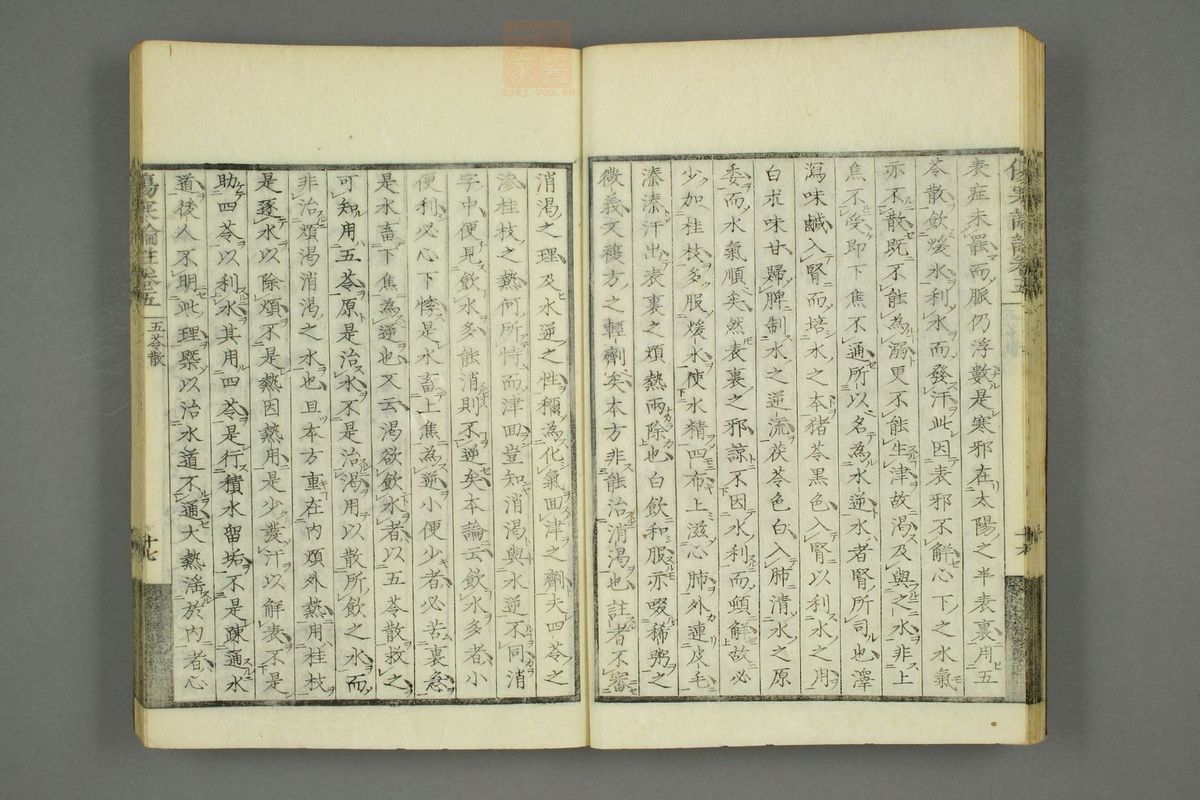 表症未罷而脈仍浮數是寒邪在太陽之半表裏用五
苓散飲煖水利水而發汗此因表邪不解心下之水氣
亦不散既不能為溺更不能生津故渴及與之水非上
焦不受即下焦不通所以名為水逆水者腎所司也澤
瀉味鹹入腎而培水之本猪苓黑色入腎以利水之用
白朮味甘歸脾制水之逆流茯苓色白入肺清水之原
委而水氣順矣然表裏之邪諒不因水利而頓解故必
少加桂枝多服煖水使水精四布上滋心肺外達皮毛
溱溱汗出表裏之煩熱兩除也白飲和服亦啜稀粥之
微義又複方之輕劑矣本方非能治消渴也註者不審
消渴之理及水逆之性稱為化氣回津之劑夫四苓之
滲桂枝之熱何所恃而津回豈知消渴與水逆不同消
字中便見飲水多能消則不逆矣本論云飲水多者小
便利必心下悸是水畜上焦為逆小便少者必苦裏急
是水畜下焦為逆也又云渴欲飲水者以五苓散救之
可知用五苓原是治水不是治渴用以散所飲之水而
非治煩渴消渴之水也且本方重在内煩外熱用桂枝
是逐水以除煩不是熱因熱用是少發汗以解表不是
助四苓以利水其用四苓是行積水留垢不是疎通水
道後人不明此理槩以治水道不通大熱淫於内者心
傷寒論註卷五
五苓散
十七